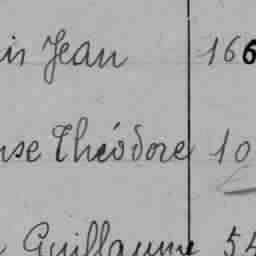 is Jean 166
se Théodore 10
Guillaume 54